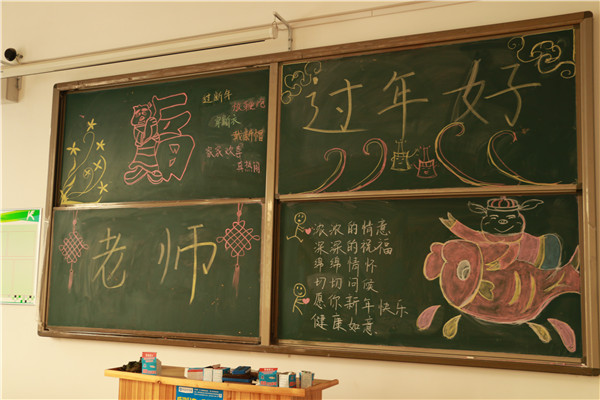 过新年
新
戴新帽
家家欢
真热闹
过年好
老师
浓浓的情意
深深的祝福
绵绵情怀
切切问候
愿你新年快乐
健康如意
K